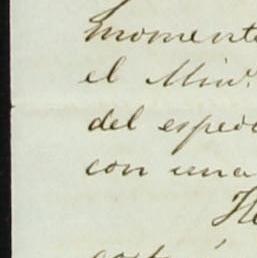 momento
el Min.
del exped
con una
He